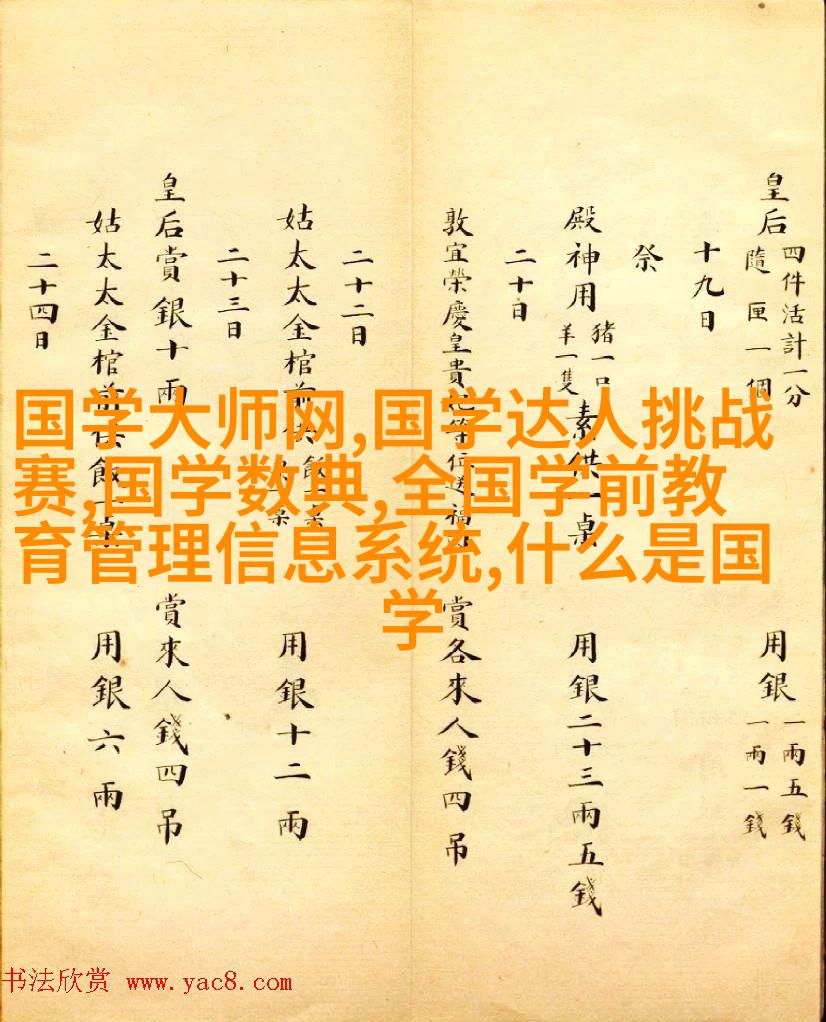 皇后 四件活計一分 隨匣一個 用銀 一兩五錢 一兩一錢
十九日
祭
殿神用 猪一口 羊一隻 素供一桌 用銀二十三兩五錢
二十日
敦宜榮慶皇貴妃等位送福 賞各來人錢四吊
二十二日
姑太太金棺前供飯一桌 用銀十二兩
二十三日
皇后賞銀十兩 賞來人錢四吊
姑太太金棺前供飯一桌 用銀六兩
二十四日
国学大师网,国学达人挑战
赛,国学数典,全国学前教
育管理信息系统,什么是国
学
书法欣赏 www.yac8.com